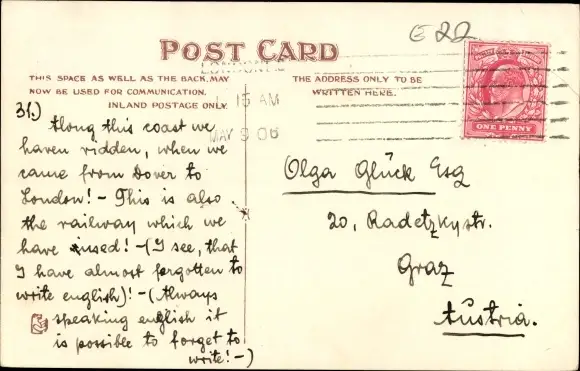 E 22
POST CARD
LONDON
THIS SPACE AS WELL AS THE BACK, MAY
NOW BE USED FOR COMMUNICATION.
INLAND POSTAGE ONLY.
THE ADDRESS ONLY TO BE
WRITTEN HERE.
15 AM
MAY 9 06
ONE PENNY
31.)
Along this coast we
haven ridden, when we
came from Dover to
London! - This is also
the railway which we
have used! - (I see, that
I have almost forgotten to
write english)! - (Always
speaking english it
is possible to forget to
write! -)
Olga Glück Esq
20, Radetzkystr.
Graz
Austria.